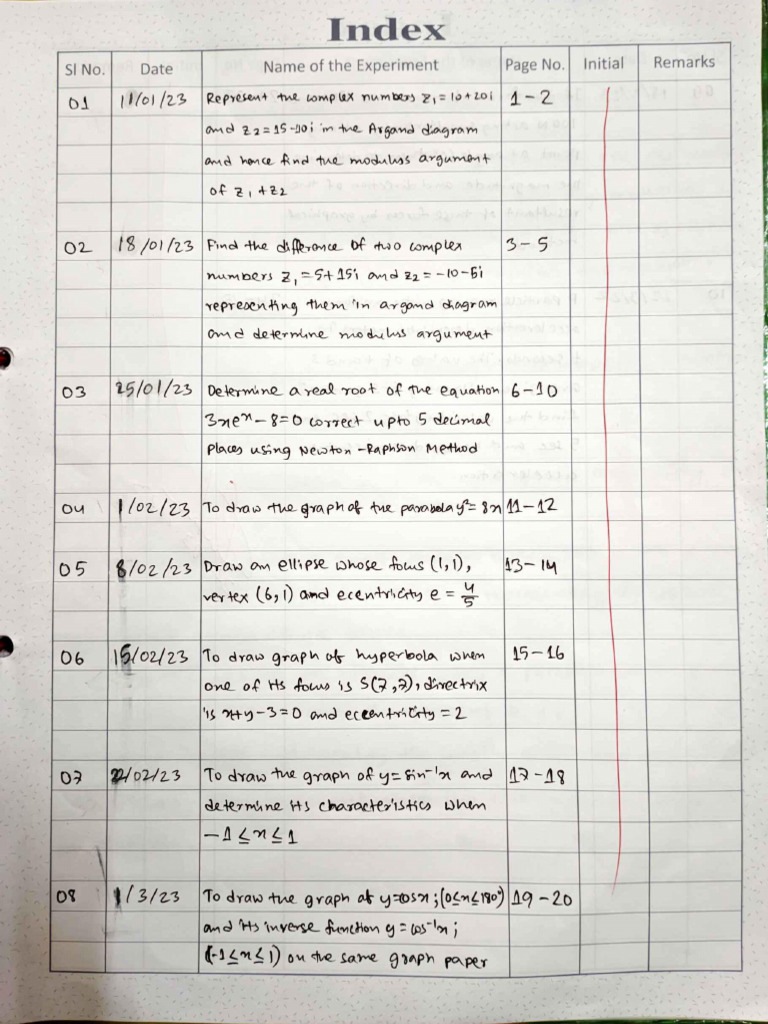 Index
Sl No. Date Name of the Experiment Page No. Initial Remarks
01 11/01/23 Represent the complex numbers z₁ = 10+20i 1-2
and z2 = 15-10i in the Argand diagram
and hence find the moduluss argument
of z₁ + z2
02 18/01/23 Find the difference of two complex 3-5
numbers z₁ = 5+15i and z2 = -10-5i
representing them in argand diagram
and determine modulus argument
03 25/01/23 Determine a real root of the equation 6-10
3xeˣ-8=0 correct upto 5 decimal
places using Newton-Raphson Method
04 1/02/23 To draw the graph of the parabola y²= 8x 11-12
05 8/02/23 Draw an ellipse whose focus (1,1), 13-14
vertex (6,1) and ecentricity e = 4/5
06 15/02/23 To draw graph of hyperbola when 15-16
one of its focus is S(7,7), directrix
is x+y-3=0 and eccentricity = 2
07 22/02/23 To draw the graph of y= sin⁻¹x and 17-18
determine its characteristics when
-1≤x≤1
08 1/3/23 To draw the graph of y=cosx; (0≤x≤180°) 19-20
and its inverse function y = cos⁻¹x;
(-1≤x≤1) on the same graph paper